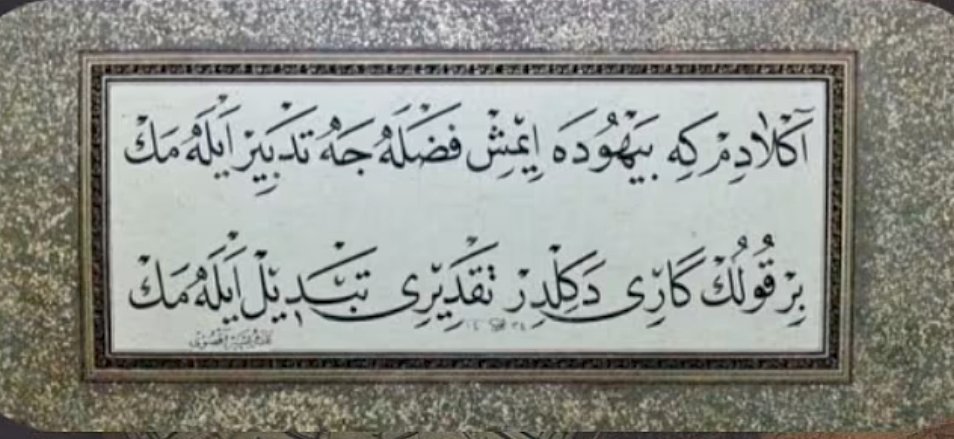 آكْلَادِمْ كِه بَيْهُودَه اِيمِشْ فَضْلَهْ جَهْ تَدْبِيرْ اَيْلَهْ مَكْ
بِرْ قُولُكْ كَارِى دَكِلْدِرْ تَقْدِيرِى تَبْدِيلْ اَيْلَهْ مَكْ